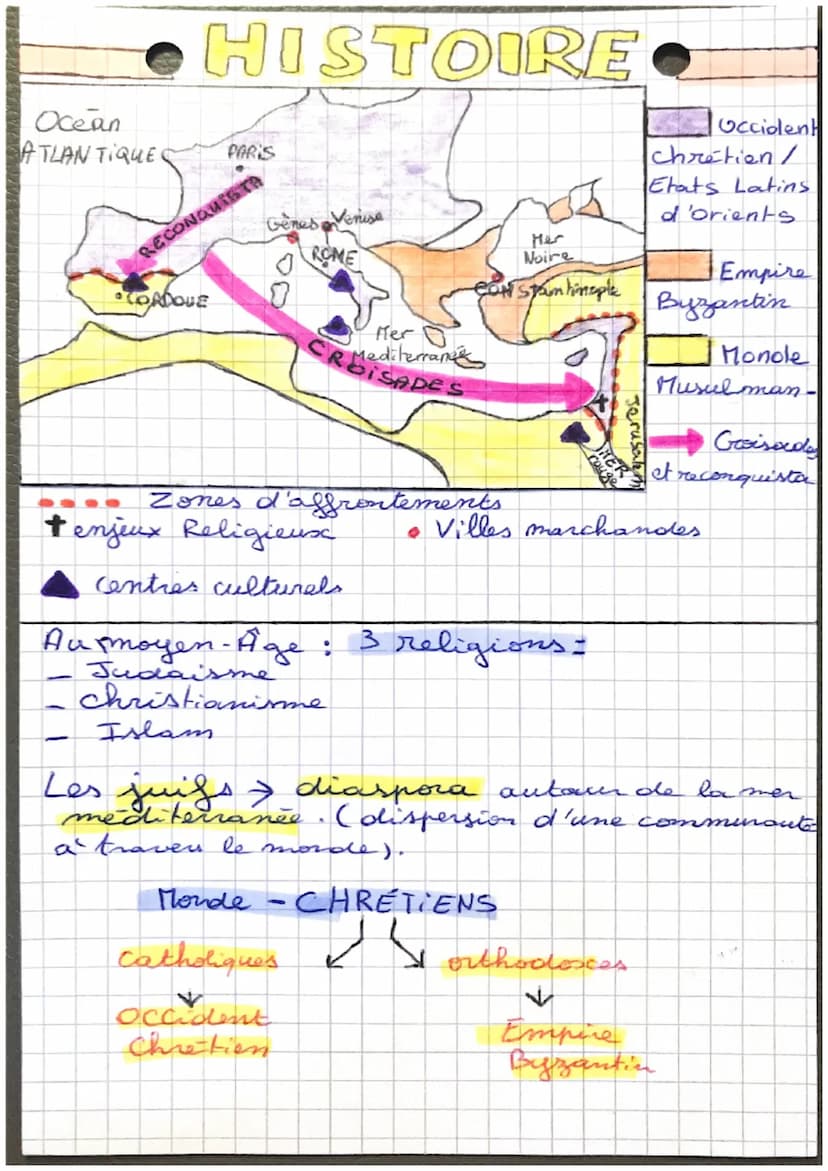 HISTOIRE
Océan
ATLANTIQUE
PARIS
RECONQUISTA
Gènes
Venise
ROME
CORDOUE
Mer
Noire
CONSTantinople
Mer
Mediterranée
CROISADES
Jerusalem
MER
rouge
Occident
chrétien /
Etats Latins
d'Orients
Empire
Byzantin
Monde
Musulman-
Croisades
et reconquista
Zones d'affrontements
enjeux Religieux
Villes marchandes
Centres culturels
Au moyen-Âge : 3 religions :
- Judaïsme
- Christianisme
- Islam
Les juifs → diaspora autour de la mer
méditerranée. (dispersion d'une communauté
à travers le monde).
Monde - CHRÉTiENS
Catholiques
orthodoxes
Occident
Chrétien
Empire
Byzantin